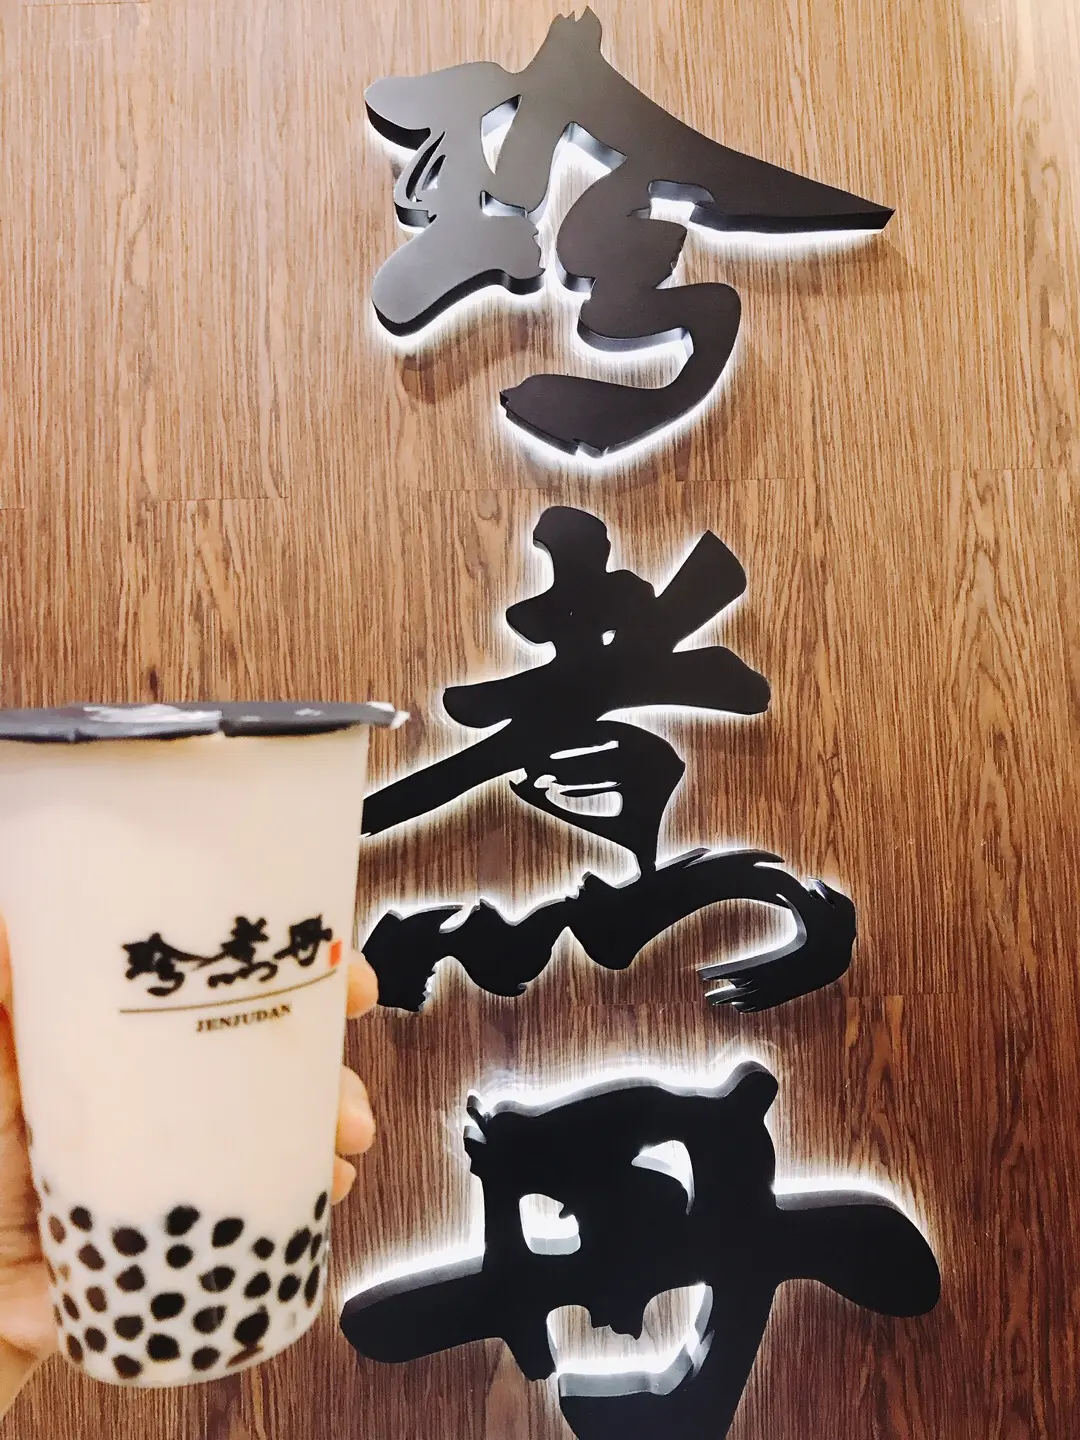 珍
煮
丹
珍煮丹
JENJUDAN